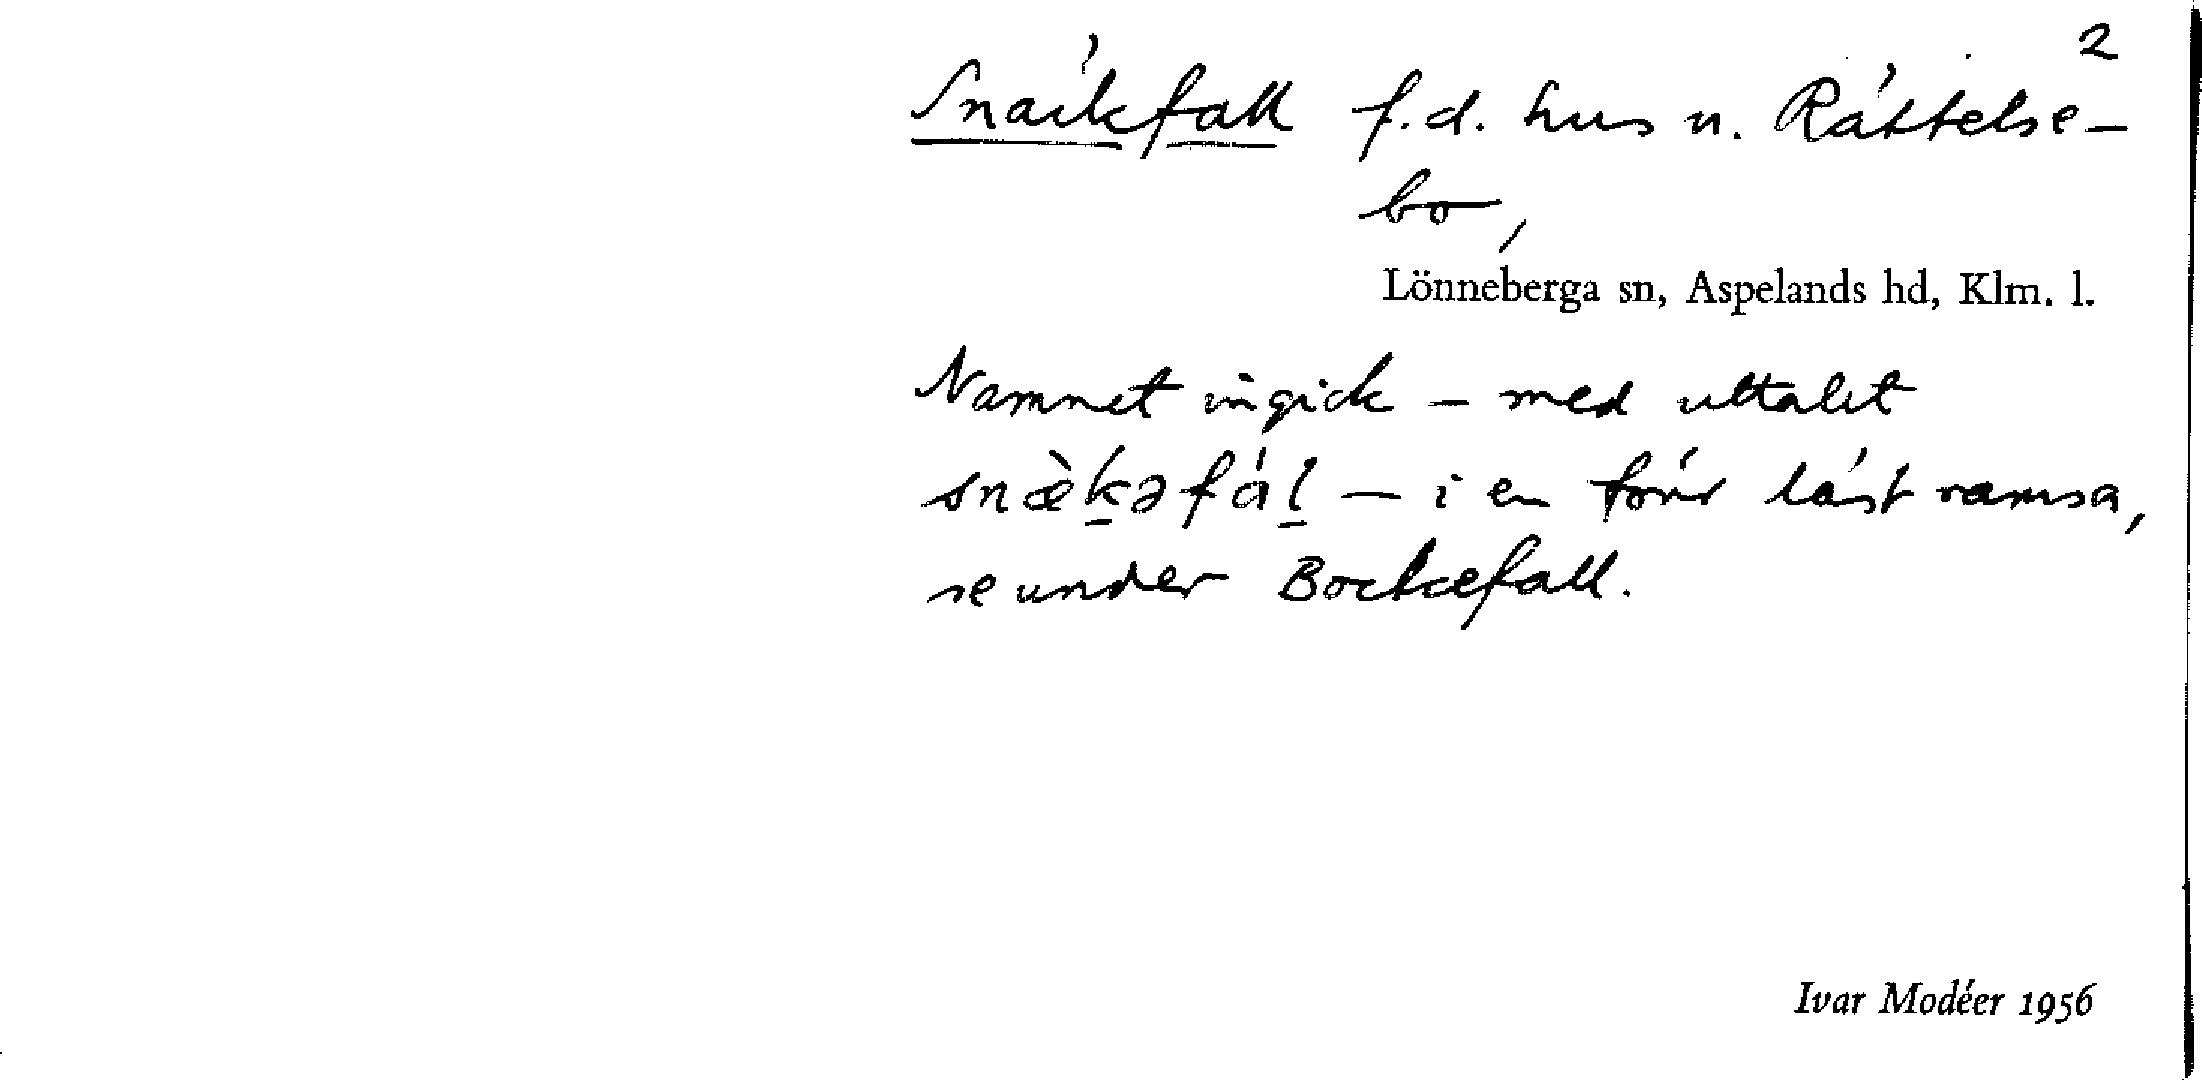 2
Snäckfall f.d. hus u. Rättelse-
bo,
Lönneberga sn, Aspelands hd, Klm. l.
Namnet ingick – med uttalet
snæ̀k̲əfál̲ – i en förr läst ramsa,
se under Bockefall.
Ivar Modéer 1956